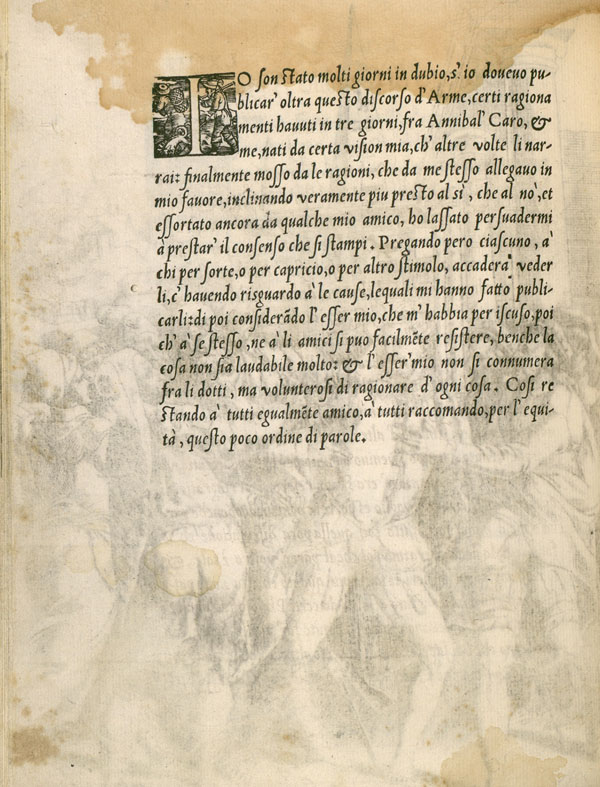 IO son stato molti giorni in dubio, s'io doueuo pu-
blicar' oltra questo discorso d'Arme, certi ragiona
menti hauuti in tre giorni, fra Annibal' Caro, &
me, nati da certa vision mia, ch' altre volte li nar-
rai: finalmente mosso da le ragioni, che da me stesso allegauo in
mio fauore, inclinando veramente piu presto al sì, che al nò, et
essortato ancora da qualche mio amico, ho lassato persuadermi
à prestar' il consenso che si stampi. Pregando pero ciascuno, a'
chi per sorte, o per capricio, o per altro stimolo, accadera' veder
li, c' hauendo risguardo à le cause, lequali mi hanno fatto publi-
carli: di poi considerãdo l' esser mio, che m' habbia per iscuso, poi
ch' à se stesso, ne à li amici si puo facilmẽte resistere, benche la
cosa non sia laudabile molto: & l' esser' mio non si connumera
fra li dotti, ma volunterosi di ragionare d' ogni cosa. Cosi re
stando a' tutti egualmẽte amico, a' tutti raccomando, per l' equi-
tà, questo poco ordine di parole.